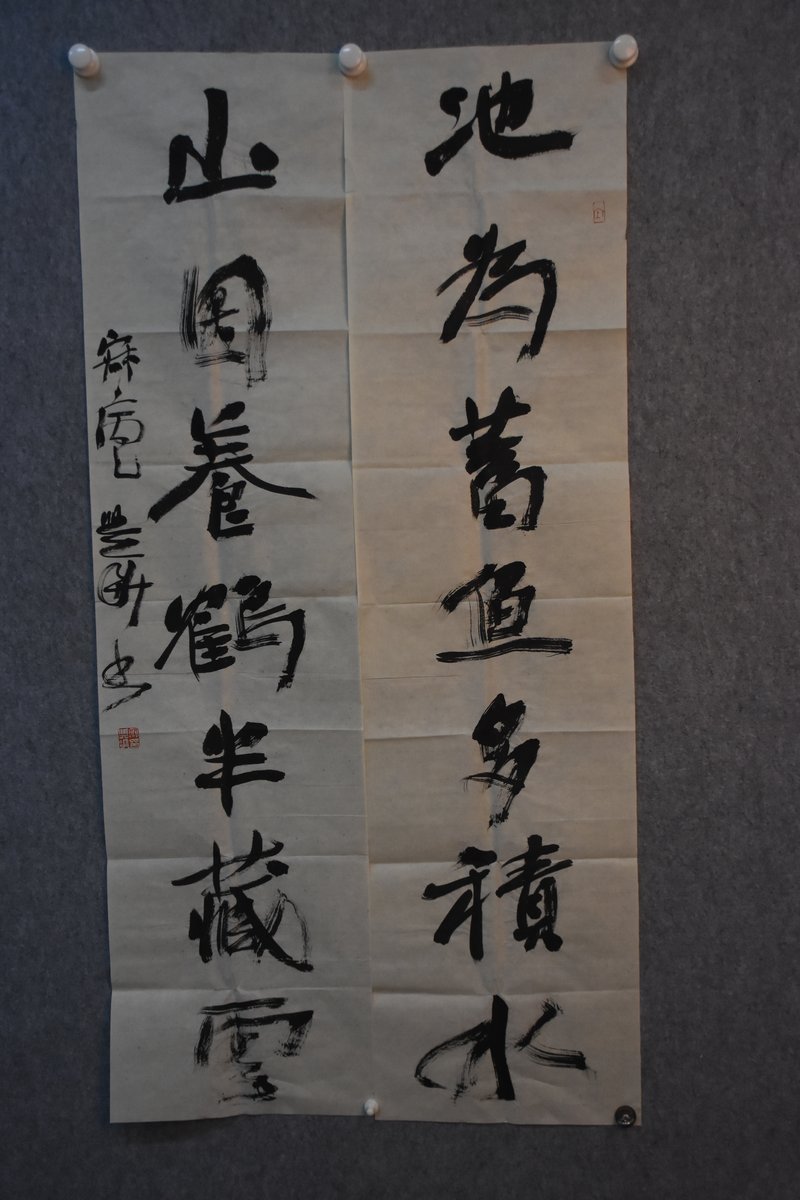 池為蓄魚多積水
山因養鶴半藏雪